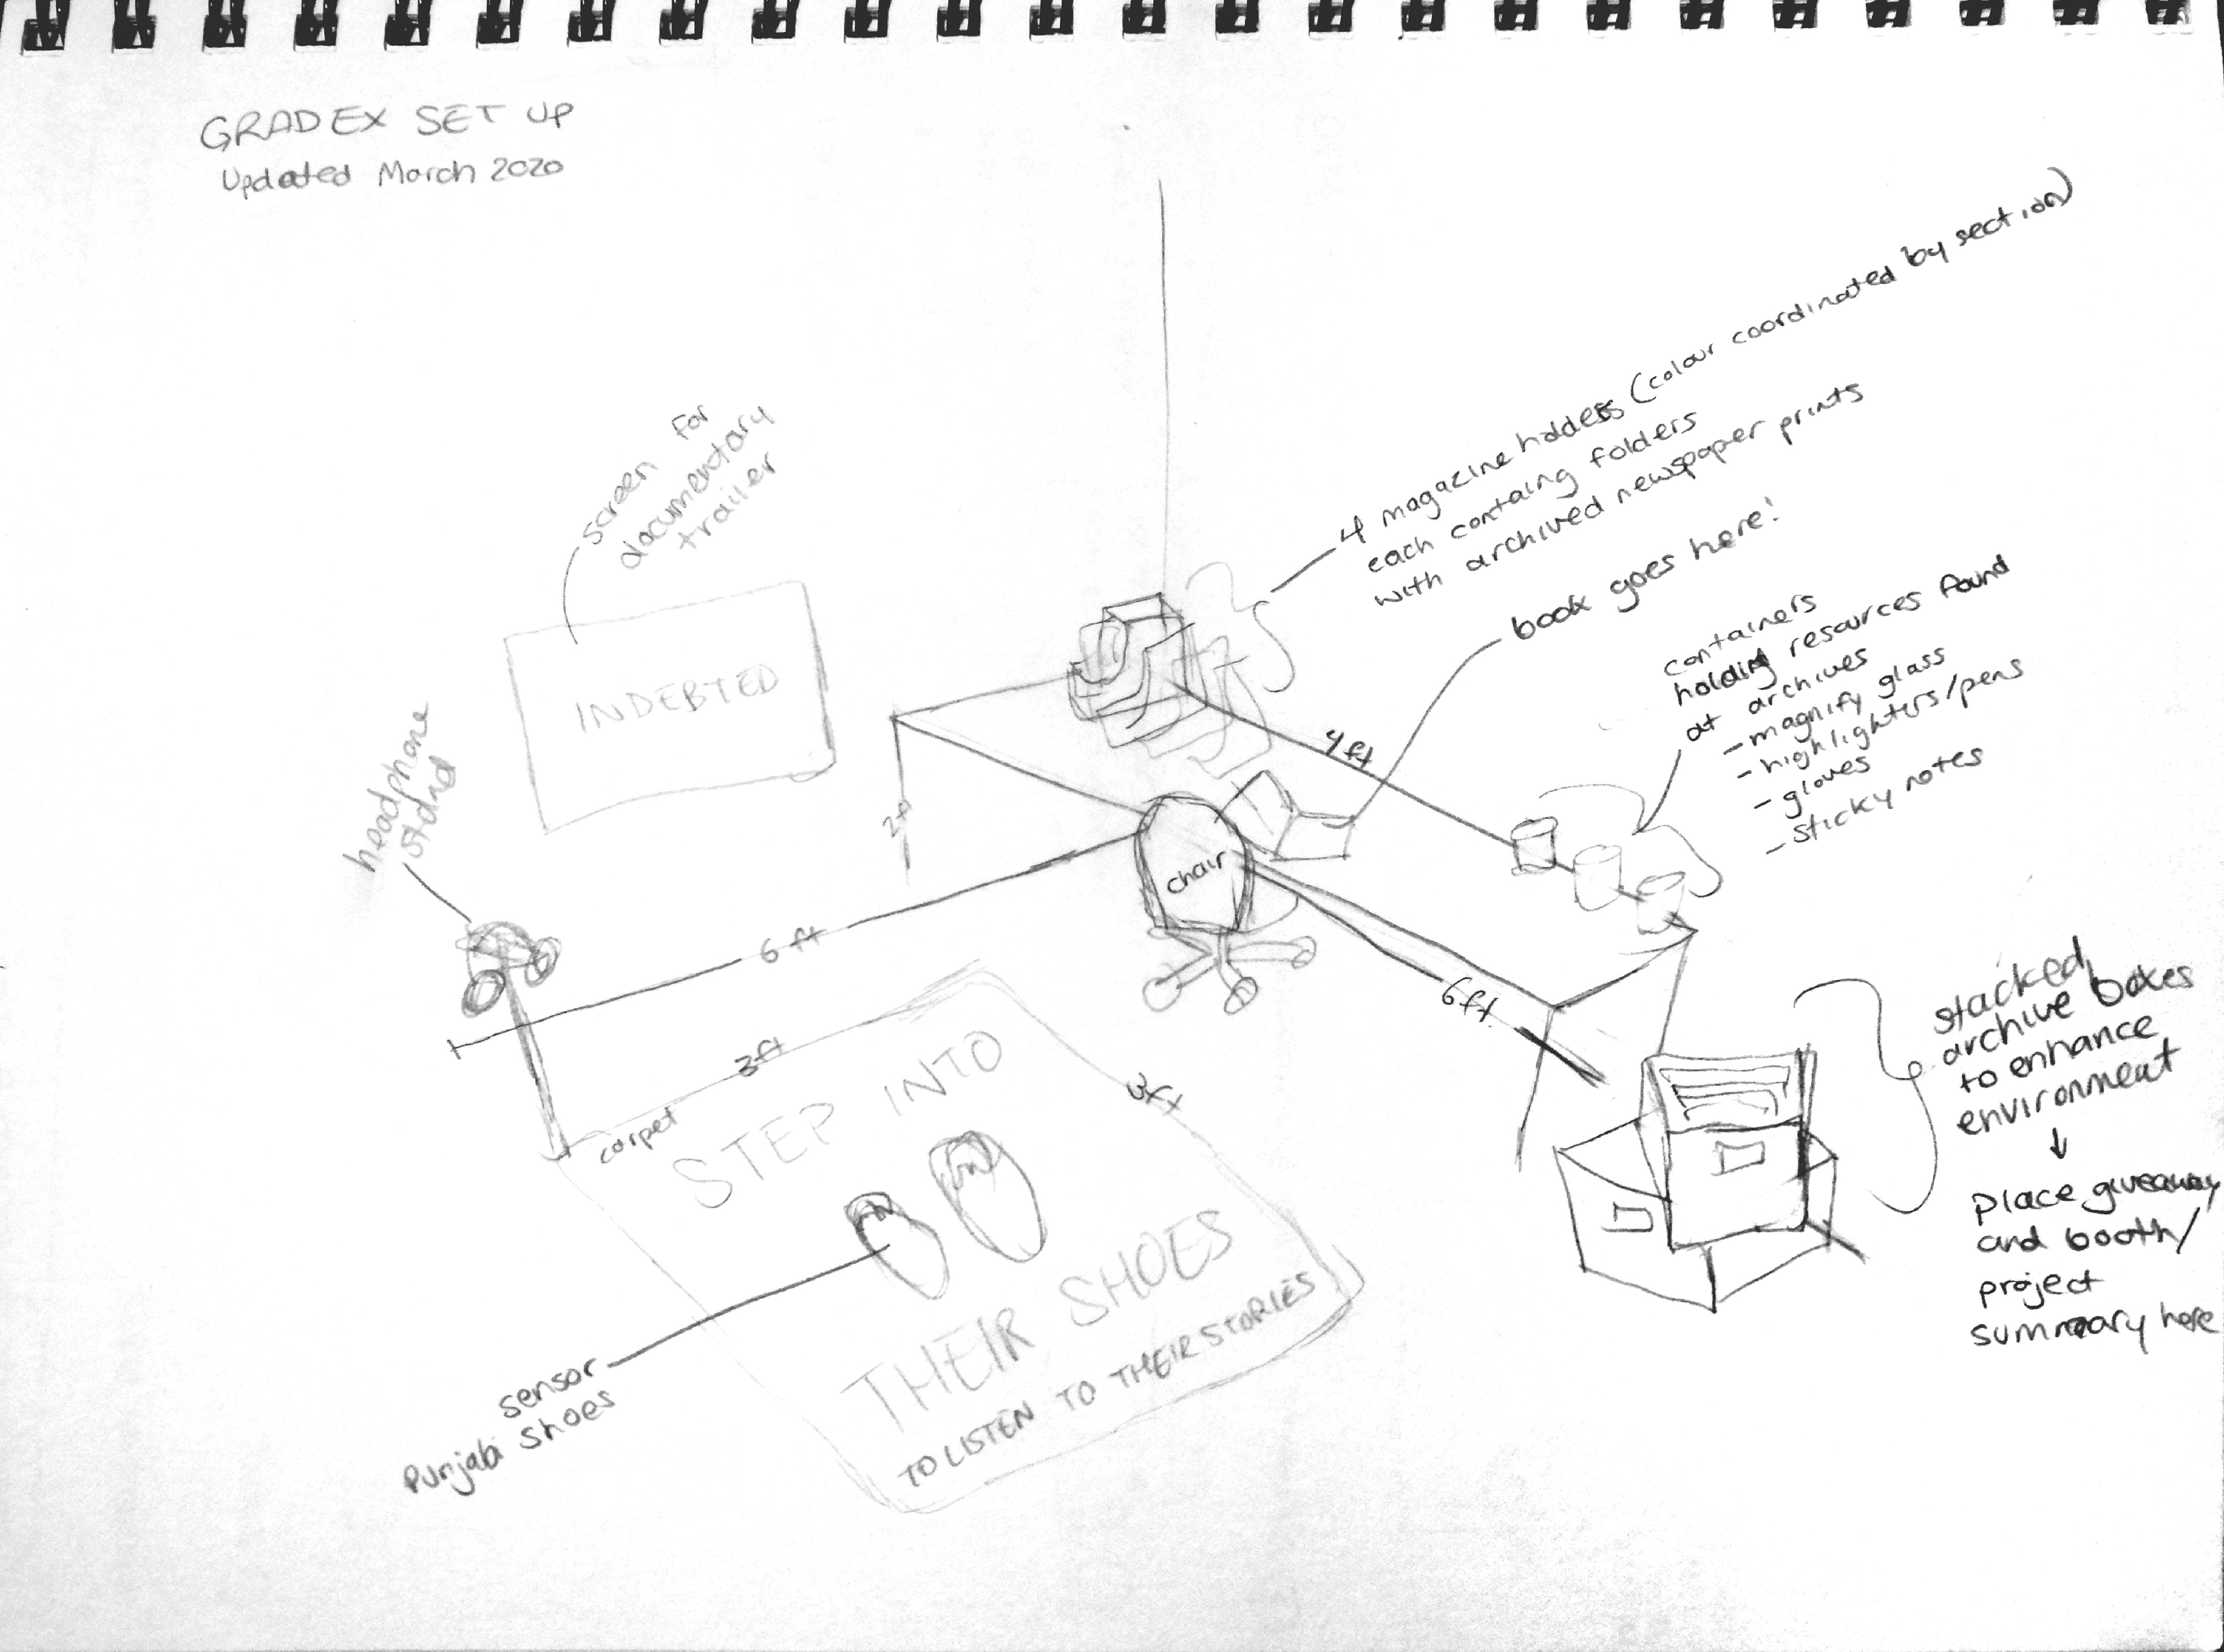 GRADEX SET UP
Updated March 2020
screen for
documentary
trailer
INDEBTED
headphone
stand
4 magazine holders (colour coordinated by section)
each containg folders
with archived newspaper prints
book goes here!
containers
holding resources found
at archives
- magnify glass
- highlighters/pens
- gloves
- sticky notes
4ft
2ft
chair
6 ft
6ft.
3ft
3ft
carpet
STEP INTO
THEIR SHOES
TO LISTEN TO THEIR STORIES
sensor
Punjabi Shoes
stacked
archive boxes
to enhance
environment
↓
Place giveaway
and booth/
project
summary here